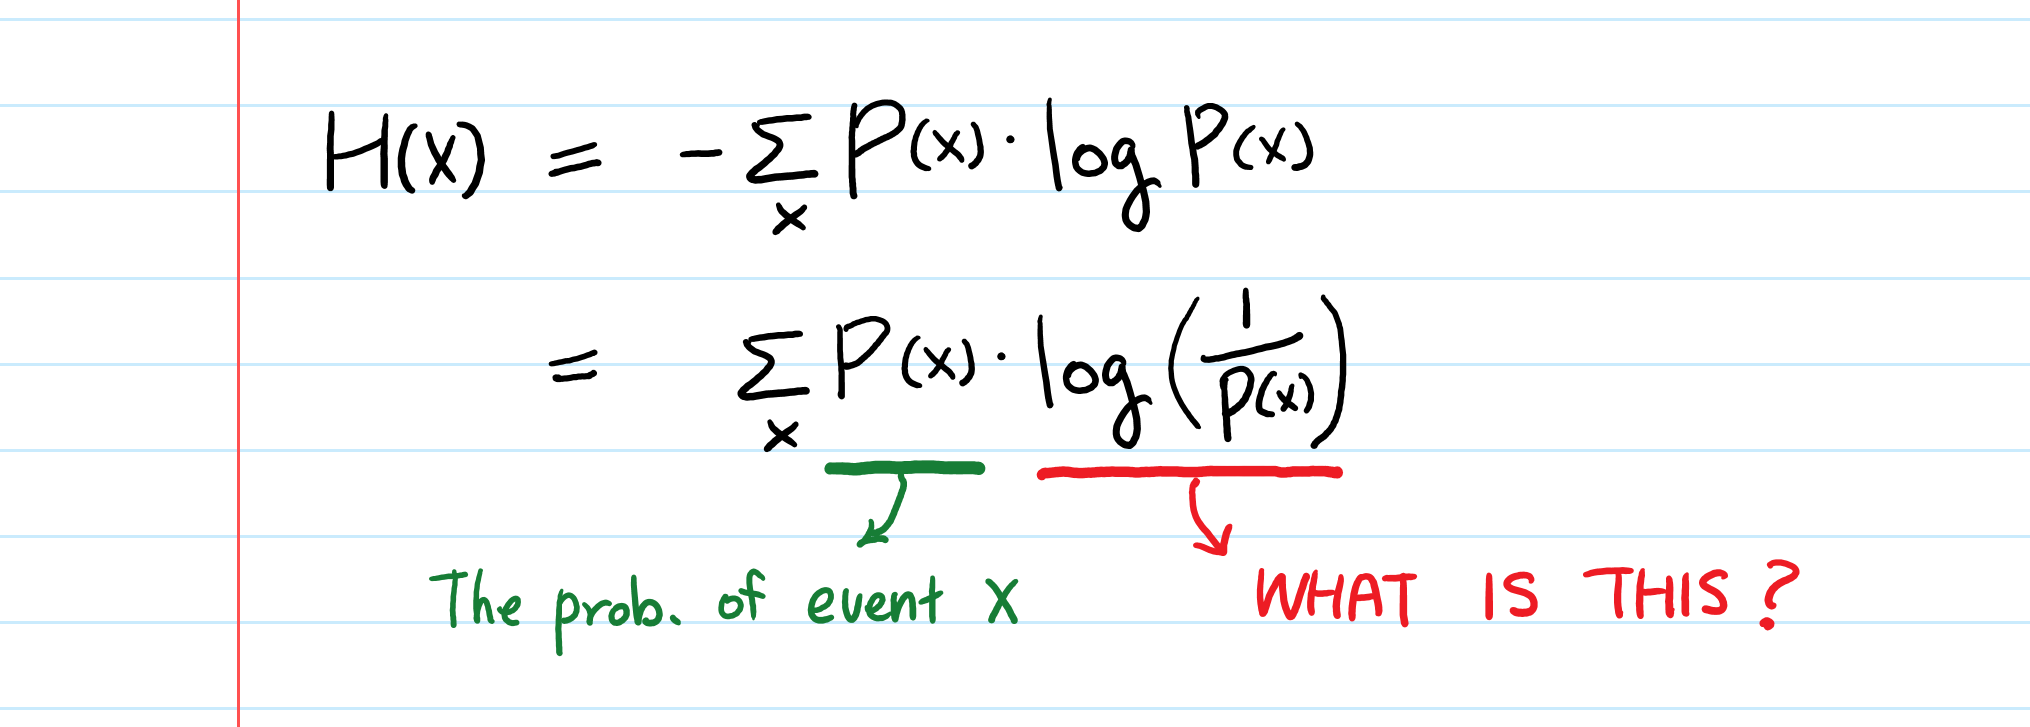 H(X) = -∑ₓ P(x)·log P(x)
= ∑ₓ P(x)·log(1/P(x))
The prob. of event X
WHAT IS THIS?